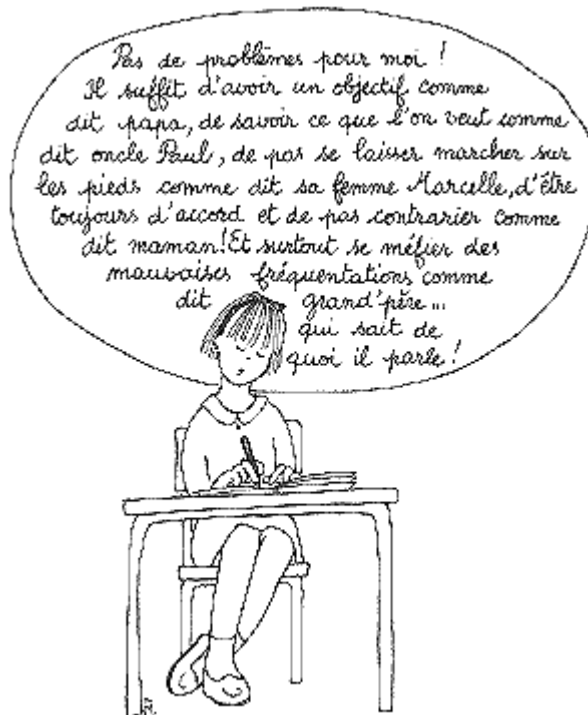 Pas de problèmes pour moi !
Il suffit d'avoir un objectif comme
dit papa, de savoir ce que l'on veut comme
dit oncle Paul, de pas se laisser marcher sur
les pieds comme dit sa femme Marcelle, d'être
toujours d'accord et de pas contrarier comme
dit maman! Et surtout se méfier des
mauvaises fréquentations comme
dit grand'père...
qui sait de
quoi il parle !